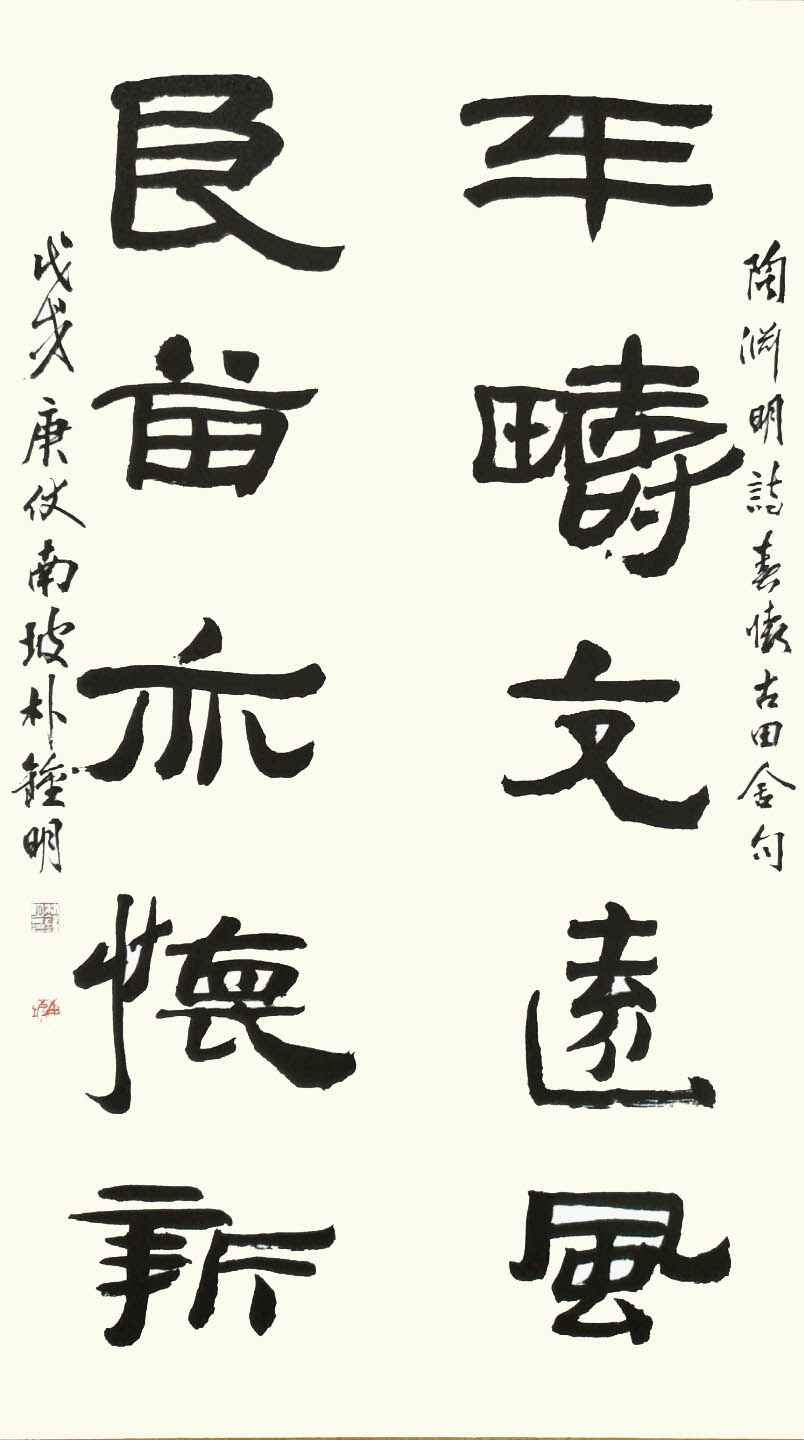 陶淵明詩春懷古田舍句
平疇交遠風
良苗亦懷新
戊戌庚伏南坡朴鍾明